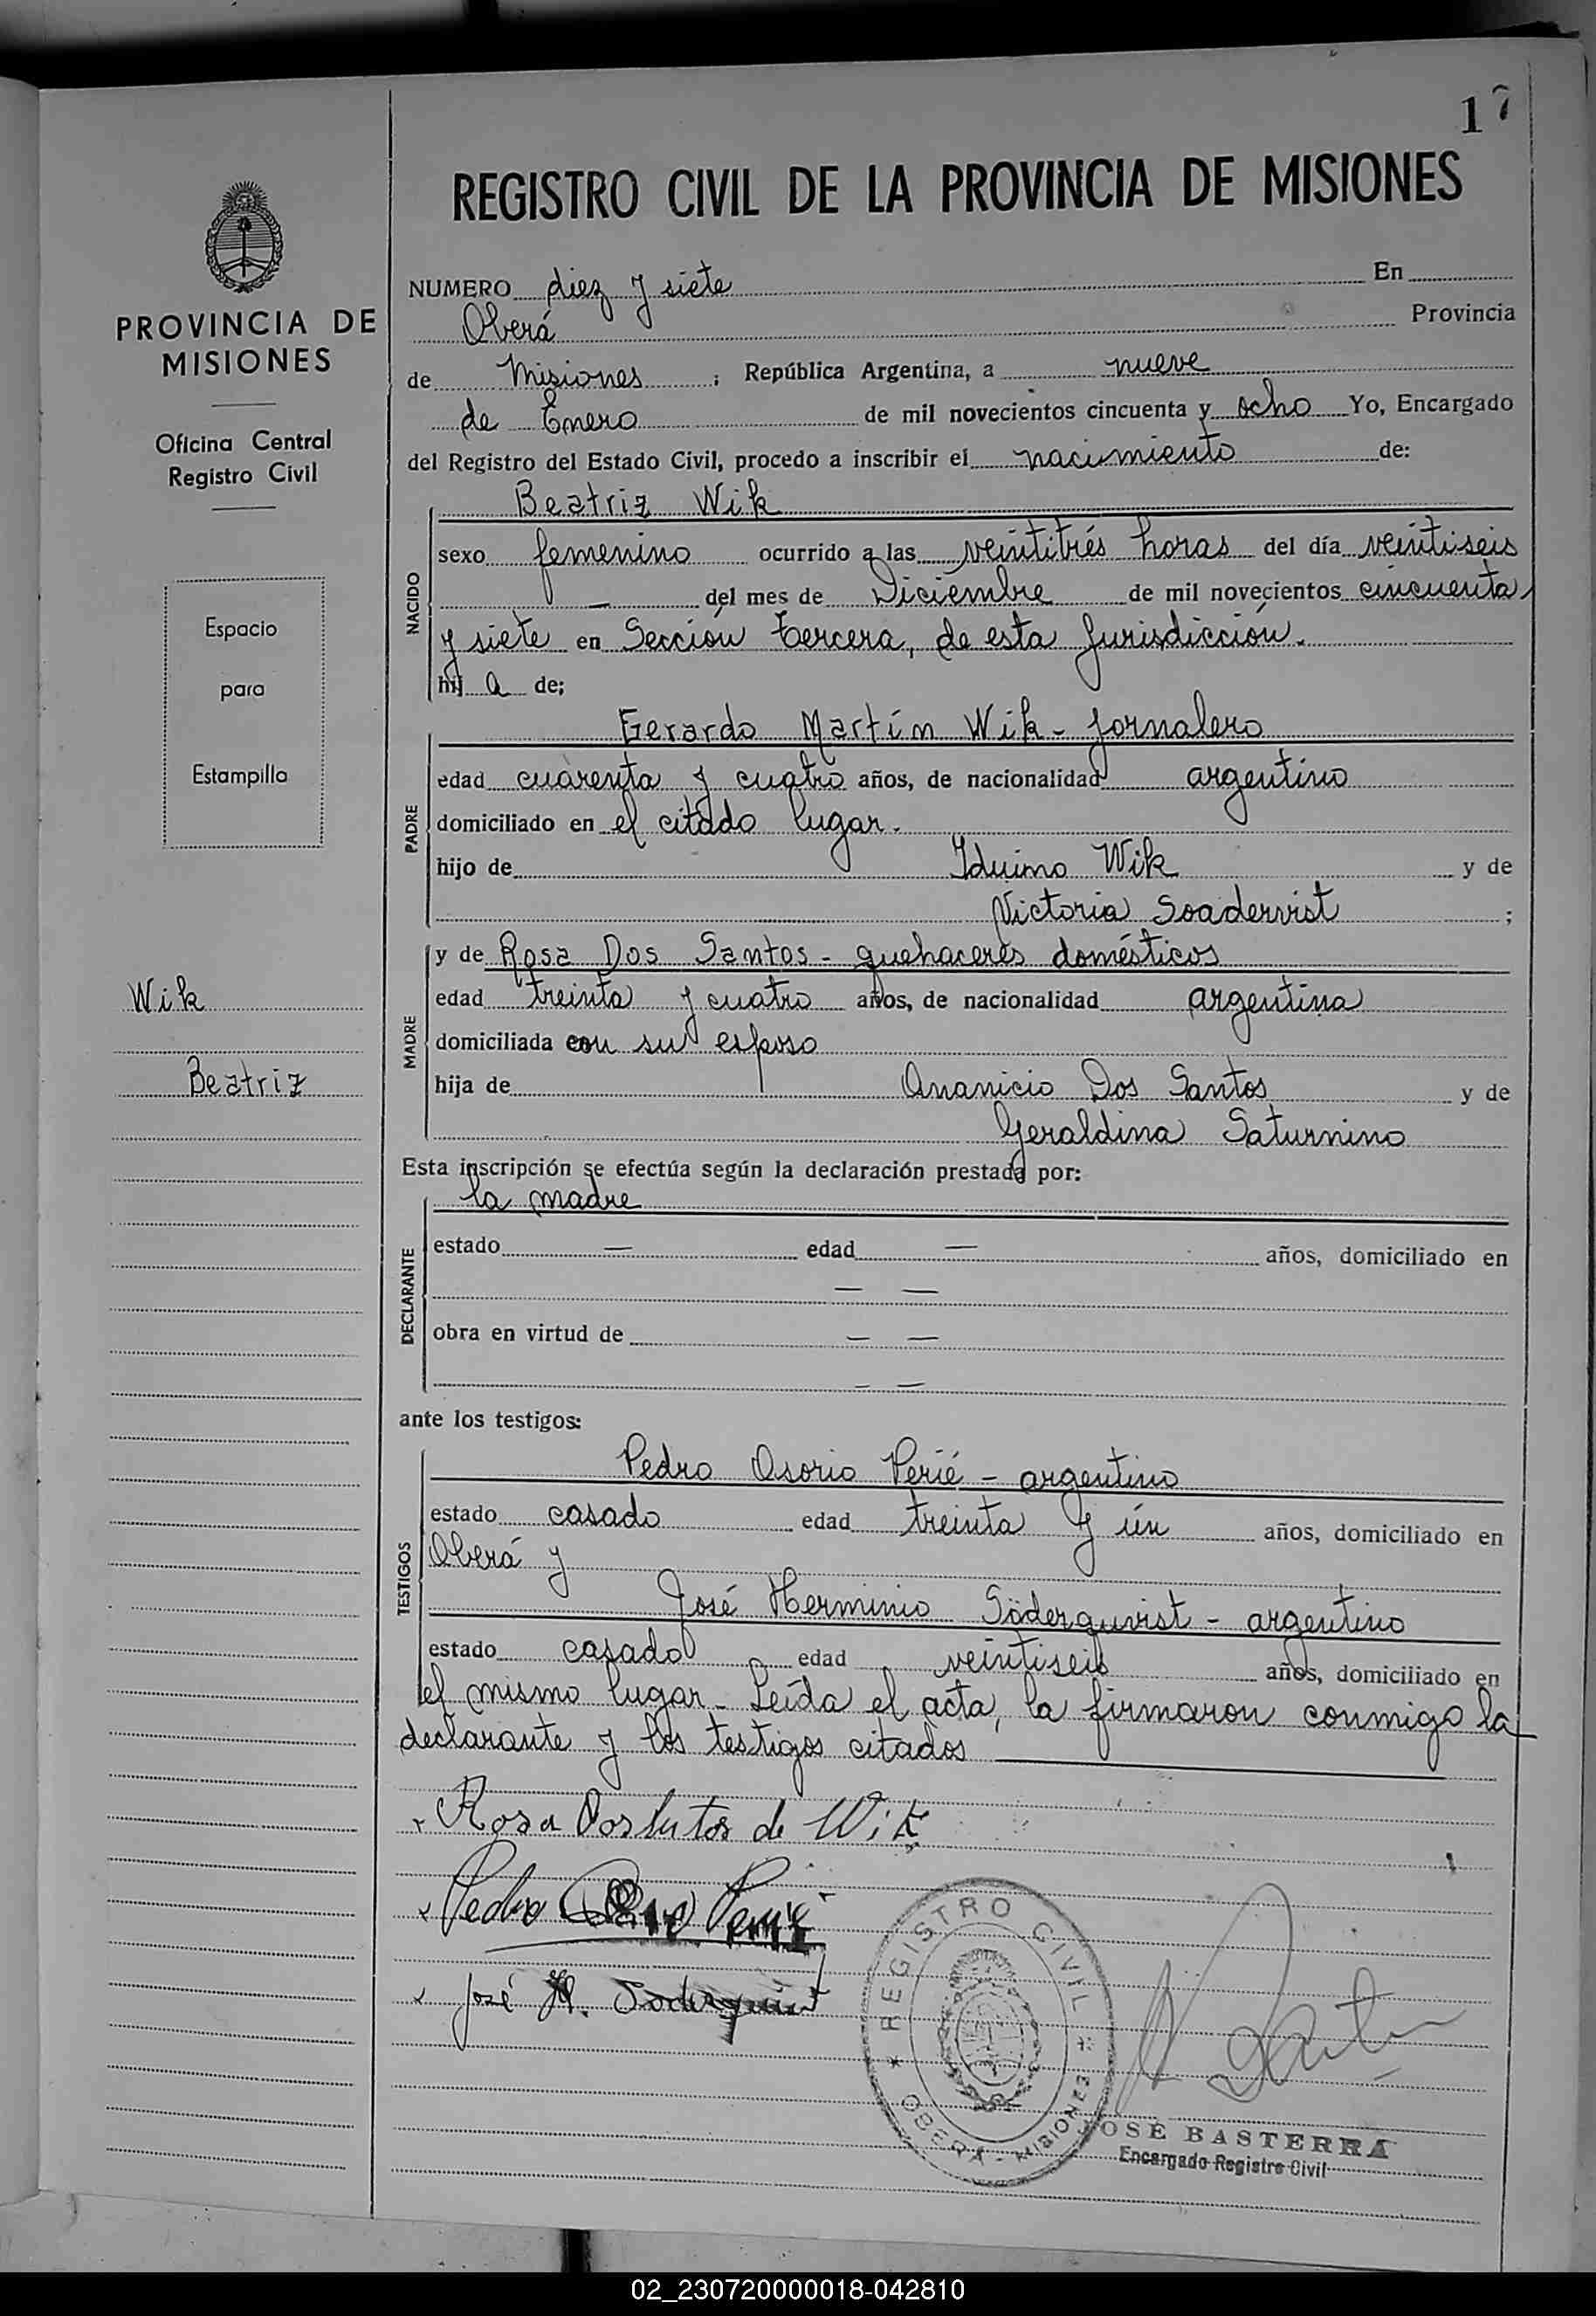 17
REGISTRO CIVIL DE LA PROVINCIA DE MISIONES
PROVINCIA DE
MISIONES
Oficina Central
Registro Civil
Espacio
para
Estampilla
Wik
Beatriz
NUMERO diez y siete En
Oberá Provincia
de Misiones ; República Argentina, a nueve
de Enero de mil novecientos cincuenta y ocho Yo, Encargado
del Registro del Estado Civil, procedo a inscribir el nacimiento de:
NACIDO
Beatriz Wik
sexo femenino ocurrido a las veintitrés horas del día veintiseis
— del mes de Diciembre de mil novecientos cincuenta
y siete en Sección tercera, de esta Jurisdicción.
hij a de;
PADRE
Gerardo Martín Wik - jornalero
edad cuarenta y cuatro años, de nacionalidad argentino
domiciliado en el citado lugar.
hijo de Iduino Wik y de
Victoria Soadervist ;
MADRE
y de Rosa Dos Santos - quehaceres domésticos
edad treinta y cuatro años, de nacionalidad argentina
domiciliada con su esposo
hija de Ananicio Dos Santos y de
Geraldina Saturnino
Esta inscripción se efectúa según la declaración prestada por:
DECLARANTE
la madre
estado — edad — años, domiciliado en
— —
obra en virtud de — —
— —
ante los testigos:
TESTIGOS
Pedro Osorio Perié - argentino
estado casado edad treinta y ún años, domiciliado en
Oberá y
José Herminio Söderquvist - argentino
estado casado edad veintiseis años, domiciliado en
el mismo lugar - Leída el acta, la firmaron conmigo la
declarante y los testigos citados
Rosa Dos de Wik
Pedro Perié
José H. Soderquist
REGISTRO CIVIL
OBERA - MISIONES
JOSE BASTERRA
Encargado Registro Civil
02_230720000018-042810